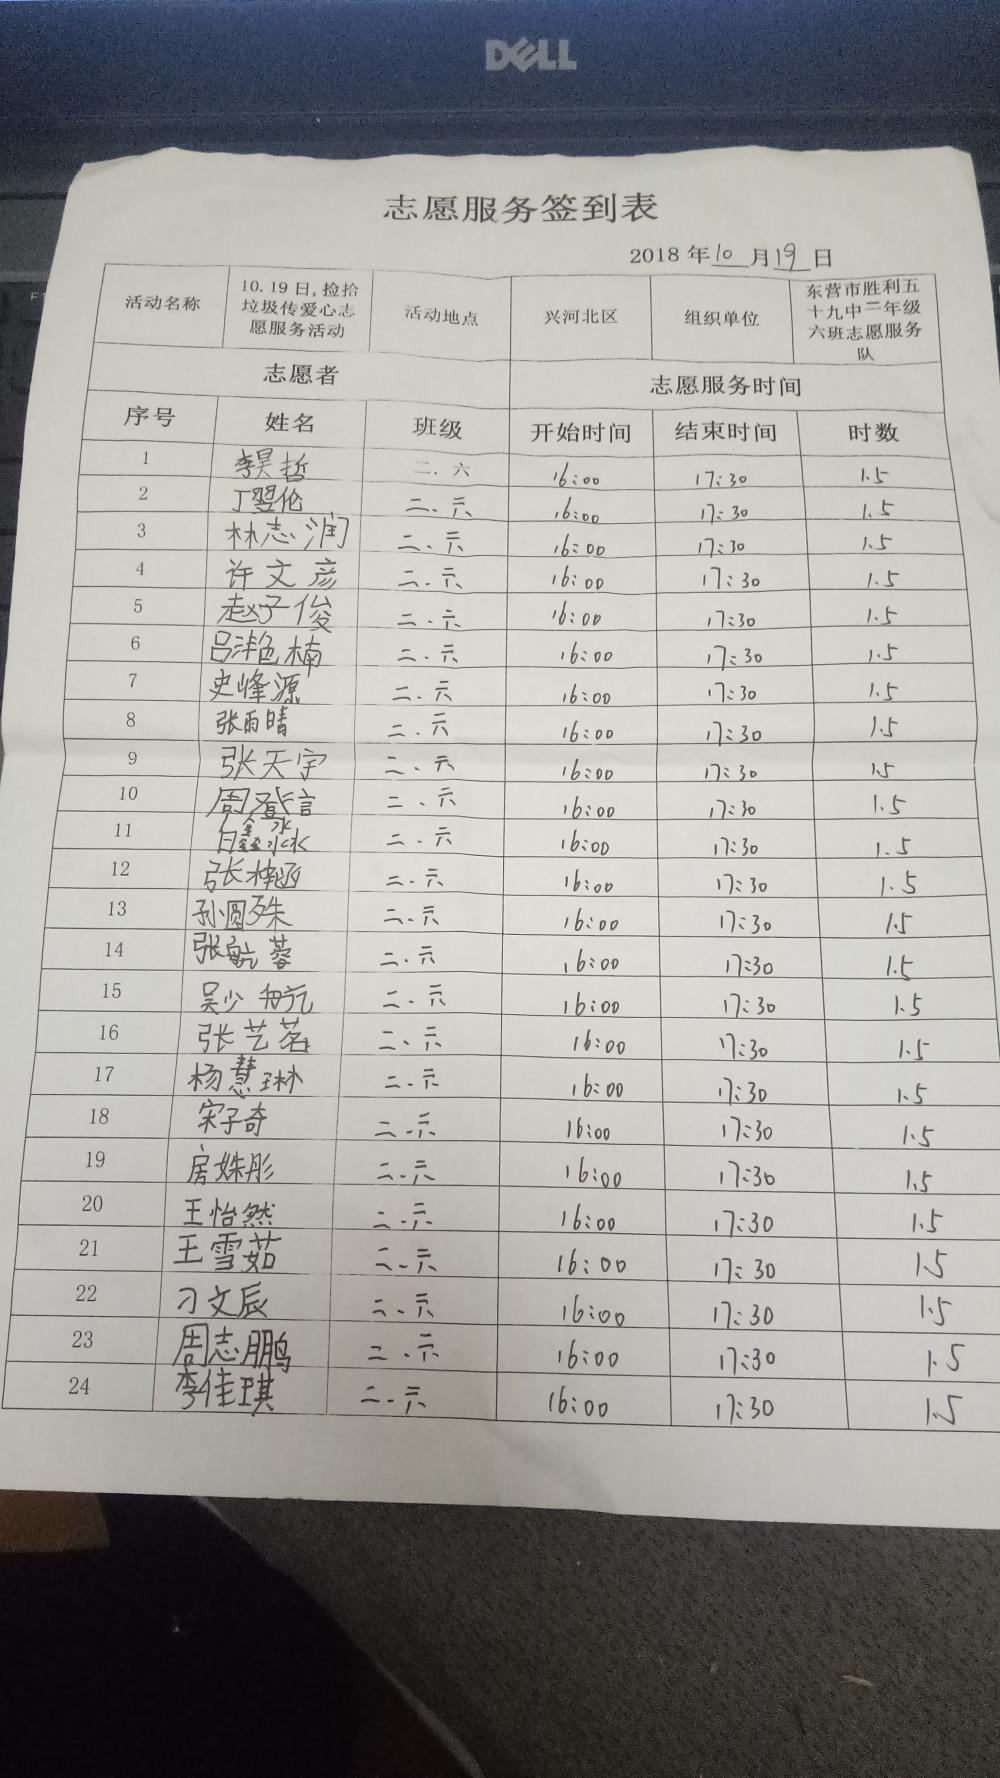 DELL
志愿服务签到表
2018年10月19日
活动名称 10.19日,捡拾垃圾传爱心志愿服务活动 活动地点 兴河北区 组织单位 东营市胜利五十九中二年级六班志愿服务队
志愿者 志愿服务时间
序号 姓名 班级 开始时间 结束时间 时数
1 李昊哲 二.六 16:00 17:30 1.5
2 丁翌伦 二.六 16:00 17:30 1.5
3 林志润 二.六 16:00 17:30 1.5
4 许文彦 二.六 16:00 17:30 1.5
5 赵子俊 二.六 16:00 17:30 1.5
6 吕沣楠 二.六 16:00 17:30 1.5
7 史峰源 二.六 16:00 17:30 1.5
8 张雨晴 二.六 16:00 17:30 1.5
9 张天宇 二.六 16:00 17:30 1.5
10 周 言 二.六 16:00 17:30 1.5
11 白鑫淼 二.六 16:00 17:30 1.5
12 张梓涵 二.六 16:00 17:30 1.5
13 孙圆殊 二.六 16:00 17:30 1.5
14 张航蓉 二.六 16:00 17:30 1.5
15 吴少航 二.六 16:00 17:30 1.5
16 张艺茗 二.六 16:00 17:30 1.5
17 杨慧琳 二.六 16:00 17:30 1.5
18 宋子奇 二.六 16:00 17:30 1.5
19 房姝彤 二.六 16:00 17:30 1.5
20 王怡然 二.六 16:00 17:30 1.5
21 王雪茹 二.六 16:00 17:30 1.5
22 刁文辰 二.六 16:00 17:30 1.5
23 周志鹏 二.六 16:00 17:30 1.5
24 李佳琪 二.六 16:00 17:30 1.5